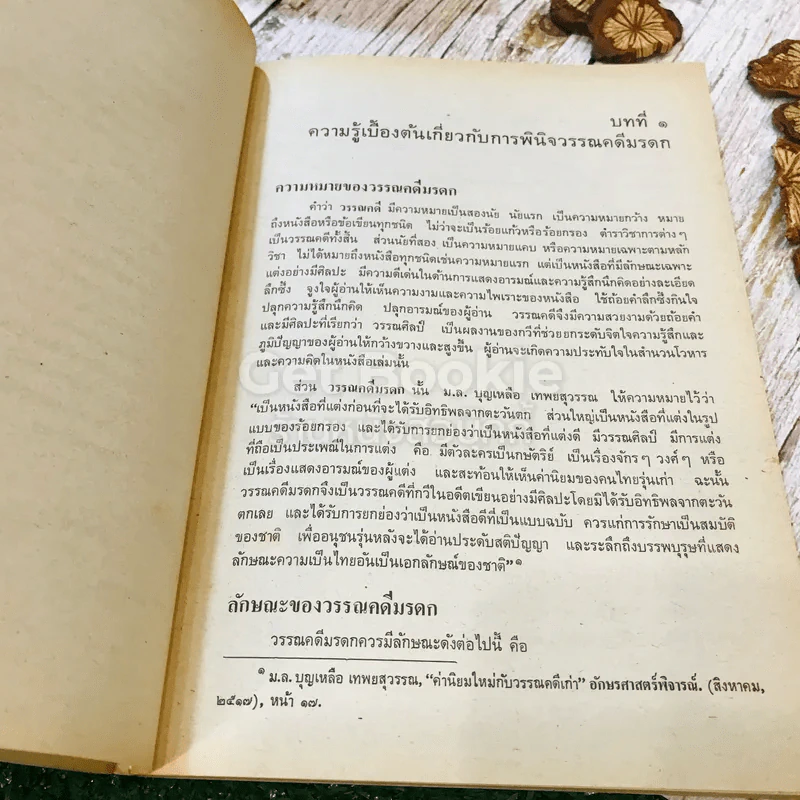 บทที่ ๑
ความรู้เบื้องต้นเกี่ยวกับการพินิจวรรณคดีมรดก
ความหมายของวรรณคดีมรดก
คำว่า วรรณคดี มีความหมายเป็นสองนัย นัยแรก เป็นความหมายกว้าง หมาย
ถึงหนังสือหรือข้อเขียนทุกชนิด ไม่ว่าจะเป็นร้อยแก้วหรือร้อยกรอง ตำราวิชาการต่าง ๆ
เป็นวรรณคดีทั้งสิ้น ส่วนนัยที่สอง เป็นความหมายแคบ หรือความหมายเฉพาะตามหลัก
วิชา ไม่ได้หมายถึงหนังสือทุกชนิดเช่นความหมายแรก แต่เป็นหนังสือที่มีลักษณะเฉพาะ
แต่งอย่างมีศิลปะ มีความดีเด่นในด้านการแสดงอารมณ์และความรู้สึกนึกคิดอย่างละเอียด
ลึกซึ้ง จูงใจผู้อ่านให้เห็นความงามและความไพเราะของหนังสือ ใช้ถ้อยคำลึกซึ้งกินใจ
ปลุกความรู้สึกนึกคิด ปลุกอารมณ์ของผู้อ่าน วรรณคดีจึงมีความสวยงามด้วยถ้อยคำ
และมีศิลปะที่เรียกว่า วรรณศิลป์ เป็นผลงานของกวีที่ช่วยยกระดับจิตใจความรู้สึกและ
ภูมิปัญญาของผู้อ่านให้กว้างขวางและสูงขึ้น ผู้อ่านจะเกิดความประทับใจในสำนวนโวหาร
และความคิดในหนังสือเล่มนั้น
ส่วน วรรณคดีมรดก นั้น ม.ล. บุญเหลือ เทพยสุวรรณ ให้ความหมายไว้ว่า
“เป็นหนังสือที่แต่งก่อนที่จะได้รับอิทธิพลจากตะวันตก ส่วนใหญ่เป็นหนังสือที่แต่งในรูป
แบบของร้อยกรอง และได้รับการยกย่องว่าเป็นหนังสือที่แต่งดี มีวรรณศิลป์ มีการแต่ง
ที่ถือเป็นประเพณีในการแต่ง คือ มีตัวละครเป็นกษัตริย์ เป็นเรื่องจักร ๆ วงศ์ ๆ หรือ
เป็นเรื่องแสดงอารมณ์ของผู้แต่ง และสะท้อนให้เห็นค่านิยมของคนไทยรุ่นเก่า ฉะนั้น
วรรณคดีมรดกจึงเป็นวรรณคดีที่กวีในอดีตเขียนอย่างมีศิลปะโดยมิได้รับอิทธิพลจากตะวัน
ตกเลย และได้รับการยกย่องว่าเป็นหนังสือดีที่เป็นแบบฉบับ ควรแก่การรักษาเป็นสมบัติ
ของชาติ เพื่ออนุชนรุ่นหลังจะได้อ่านประดับสติปัญญา และระลึกถึงบรรพบุรุษที่แสดง
ลักษณะความเป็นไทยอันเป็นเอกลักษณ์ของชาติ”๑
ลักษณะของวรรณคดีมรดก
วรรณคดีมรดกควรมีลักษณะดังต่อไปนี้ คือ
๑ ม.ล. บุญเหลือ เทพยสุวรรณ, “ค่านิยมใหม่กับวรรณคดีเก่า” อักษรศาสตร์พิจารณ์. (สิงหาคม,
๒๕๑๗), หน้า ๑๗.
Get Bookie